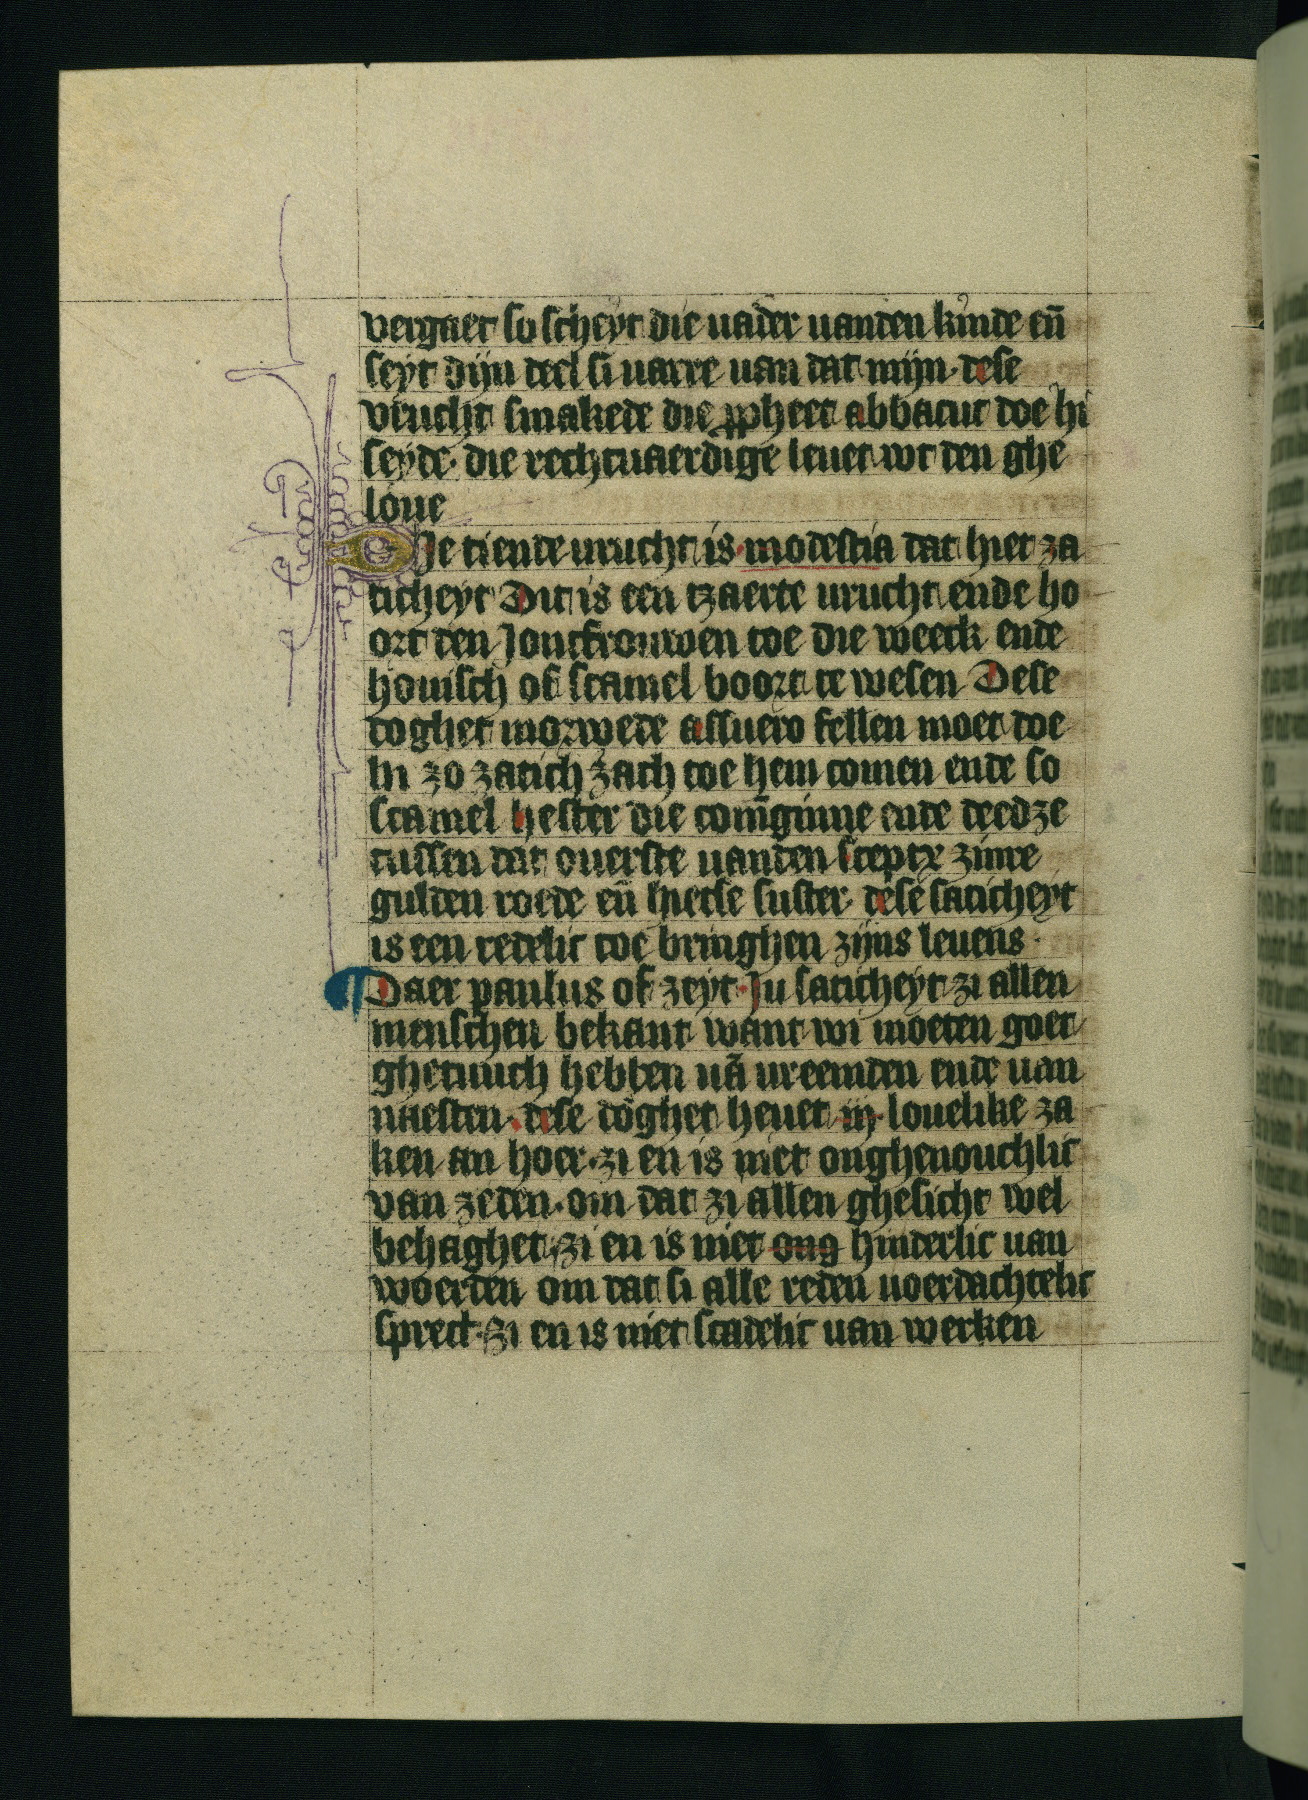 vergaet so scheyt die uader uanden kinde eñ
seyt dijn deel si uarre uan dat mijn· dese
vrucht smakede die ꝓpheet abbacuc doe hi
seyde· die rechtuaerdige leuet wt den ghe
loue
Die tiende urucht is· modestia dat hiet za
ticheyt Dit is een tzaerte urucht ende ho
ort den Joncfrouwen toe die weeck ende
houisch of scamel boort te wesen Dese
doghet morwede assuero fellen moet doe
hi zo zatich zach toe hem comen ende so
scamel hester die coniginne ende deedze
cussen dat ouerste uanden sceptr zinre
gulden roede eñ hietse suster· dese saticheyt
is een redelic toe bringhen zijns leuens·
¶ Daer paulus of zeyt· Ju saticheyt zi allen
menschen bekant want wi moeten goet
ghetuuch hebben uā ureemden ende uan
naesten· dese doghet heuet iij· louelike za
ken an hoer· zi en is niet onghenouchlic
van zeden· om dat zi allen ghesicht wel
behaghet· zi en is niet ong hinderlic uan
woerden om dat si alle reden uoerdachtelic
sprect· zi en is niet scadelic uan werken